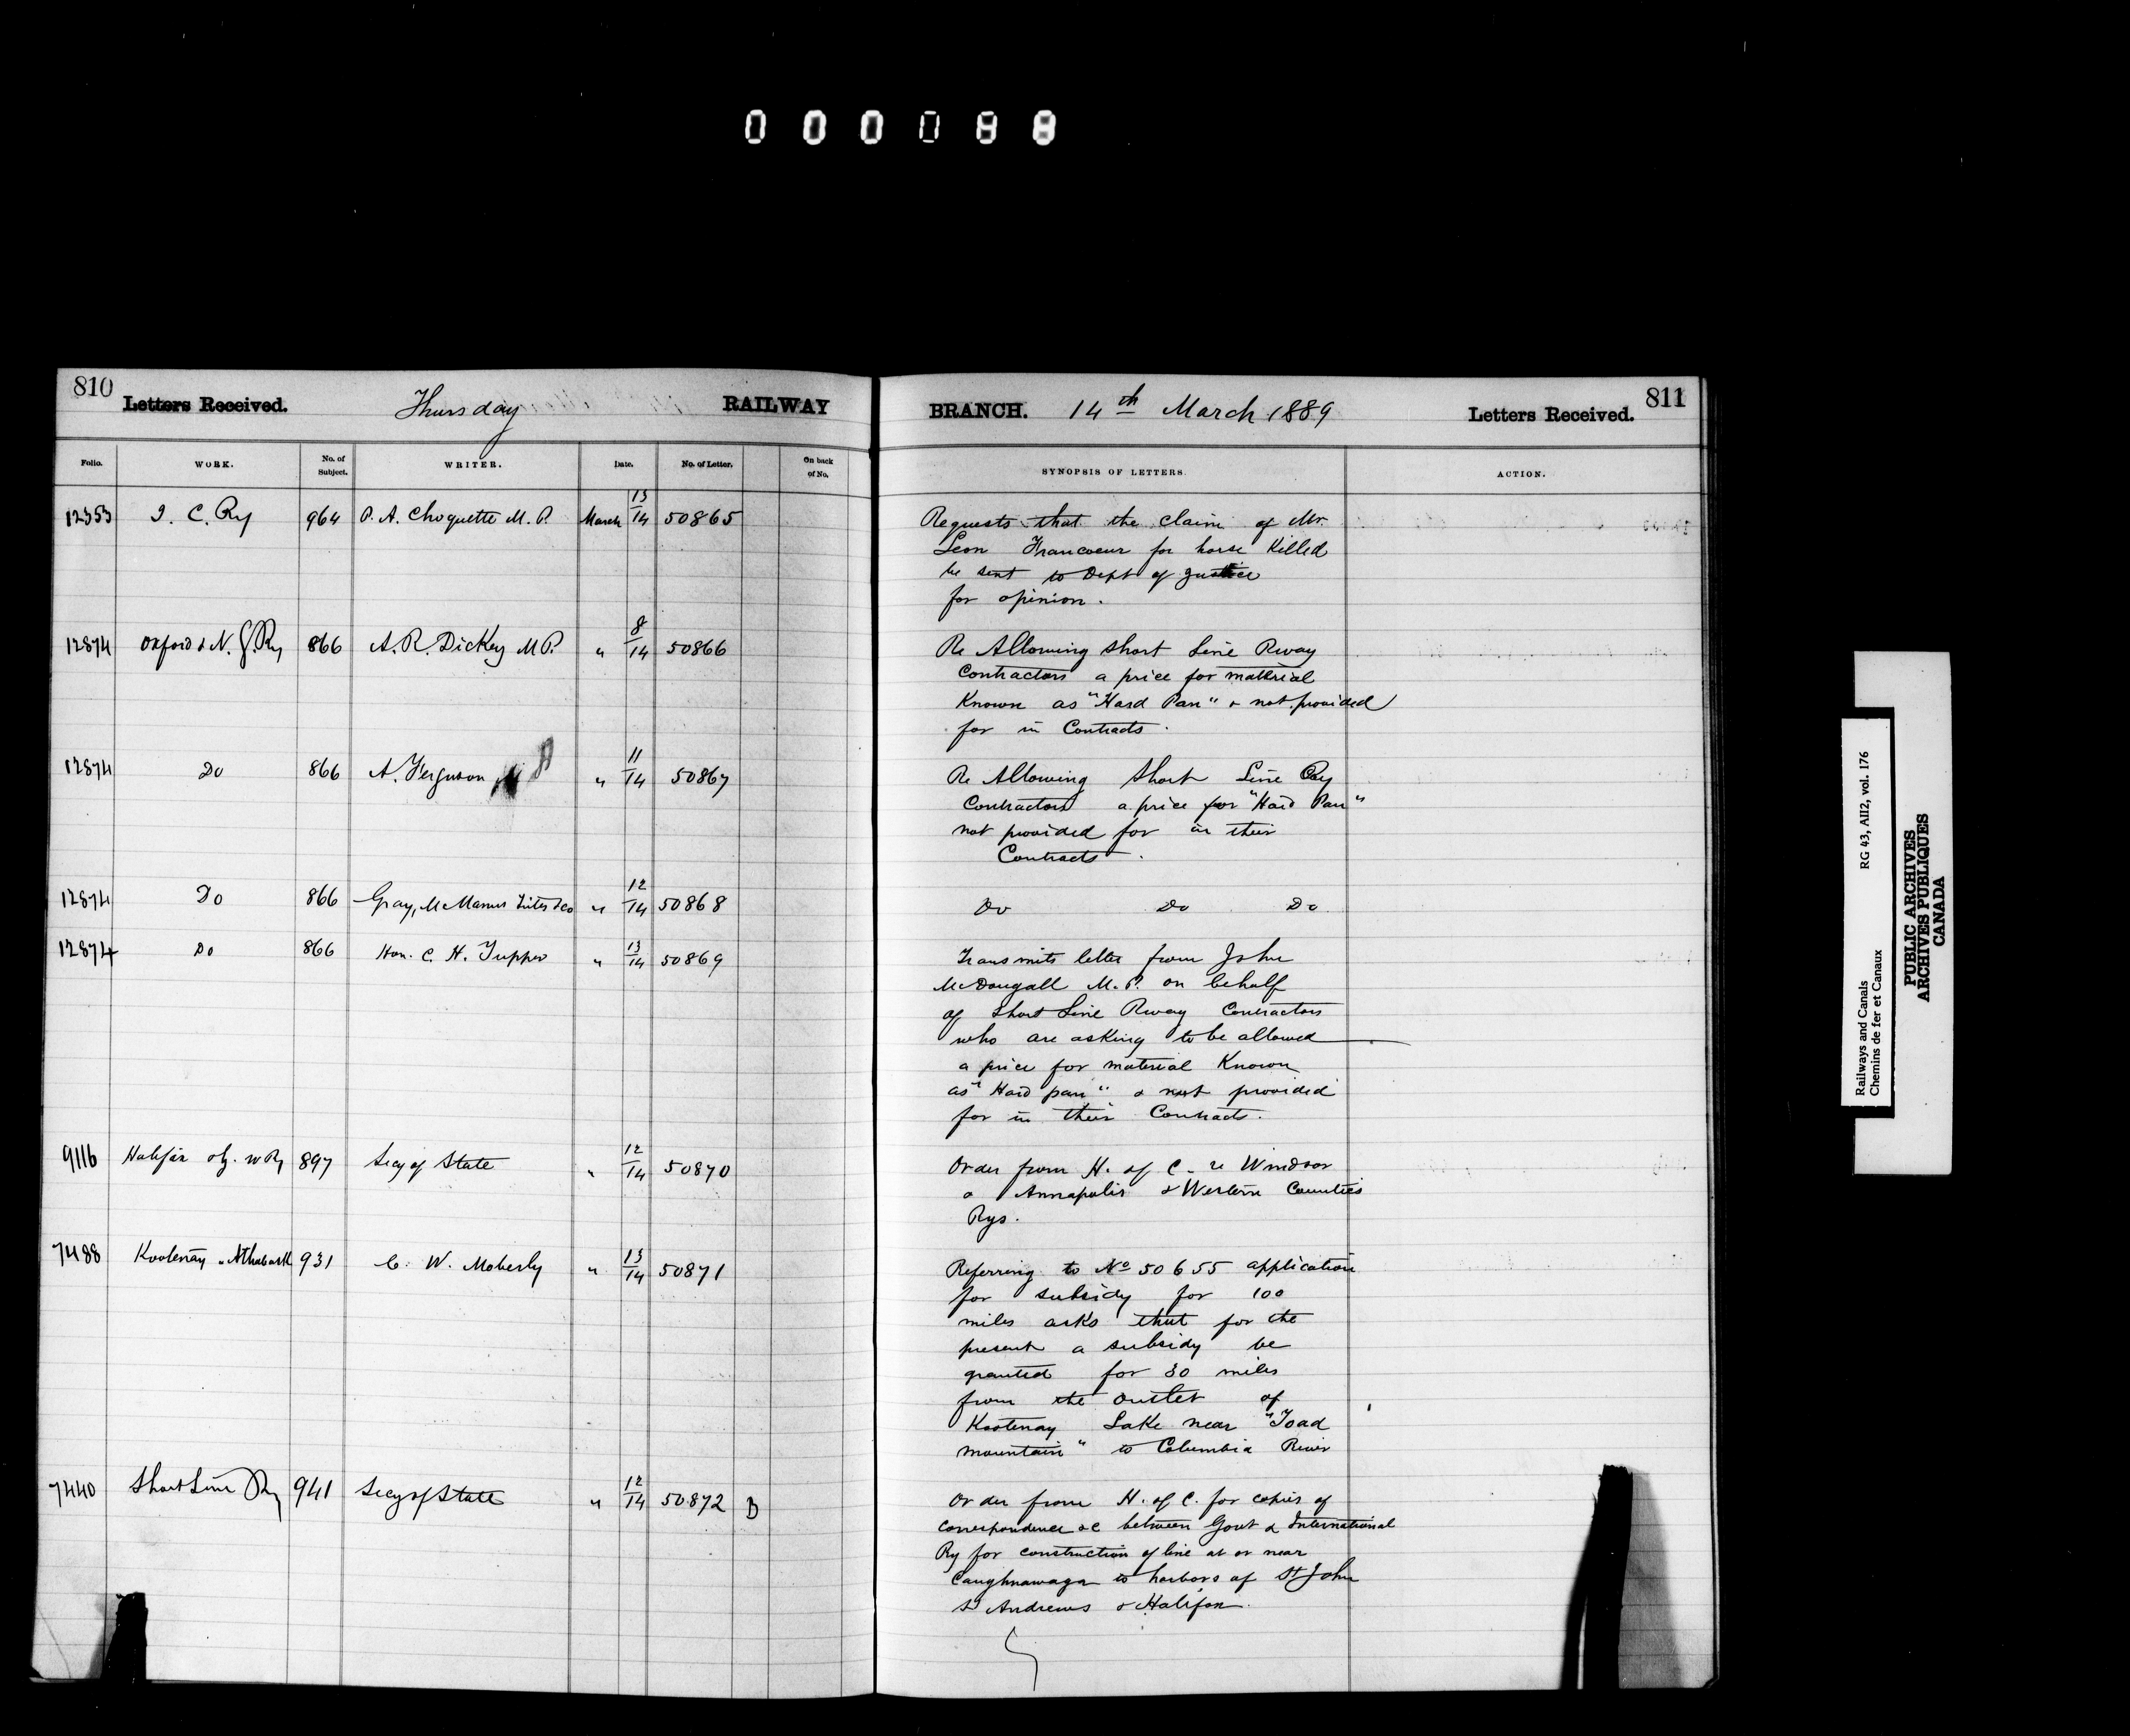 000088
810
Letters Received.
Thursday
RAILWAY
Folio.
WORK.
No. of Subject.
WRITER.
Date.
No. of Letter.
On back of No.
12353 I. C. Ry 964 P. A. Choquette M. P. March 13/14 50865
12874 Oxford & N. G. Ry 866 A. R. Dickey M P. " 8/14 50866
12874 Do 866 A. Ferguson " 11/14 50867
12874 Do 866 Gray, McManus & Co " 12/14 50868
12874 Do 866 Hon. C. H. Tupper " 13/14 50869
9116 Halifax Ry 897 Secy of State " 12/14 50870
7488 Kootenay & Athabask 931 C. W. Moberly " 13/14 50871
7440 Short Line Ry 941 Secy of State " 12/14 50872 B
BRANCH. 14th March 1889
Letters Received.
811
SYNOPSIS OF LETTERS.
ACTION.
Requests that the claim of Mr.
Leon Francoeur for horse Killed
be sent to Dept of Justice
for opinion.
Re Allowing Short Line Rway
Contractors a price for material
Known as "Hard Pan" & not provided
for in Contracts.
Re Allowing Short Line Ry
Contractors a price for "Hard Pan"
not provided for in their
Contracts.
Do Do Do
Transmits letter from John
McDougall M. P. on behalf
of Short Line Rway Contractors
who are asking to be allowed
a price for material Known
as "Hard pan" & not provided
for in their Contracts.
Order from H. of C. re Windsor
& Annapolis & Western Counties
Rys.
Referring to No 50655 application
for subsidy for 100
miles asks that for the
present a subsidy be
granted for 30 miles
from the outlet of
Kootenay Lake near "Toad
mountain" to Columbia River
Order from H. of C. for copies of
correspondence &c between Govt & International
Ry for construction of line at or near
Caughnawaga to harbors of St John
St Andrews & Halifax.
Railways and Canals RG 43, AII2, vol. 176
Chemins de fer et Canaux
PUBLIC ARCHIVES
ARCHIVES PUBLIQUES
CANADA